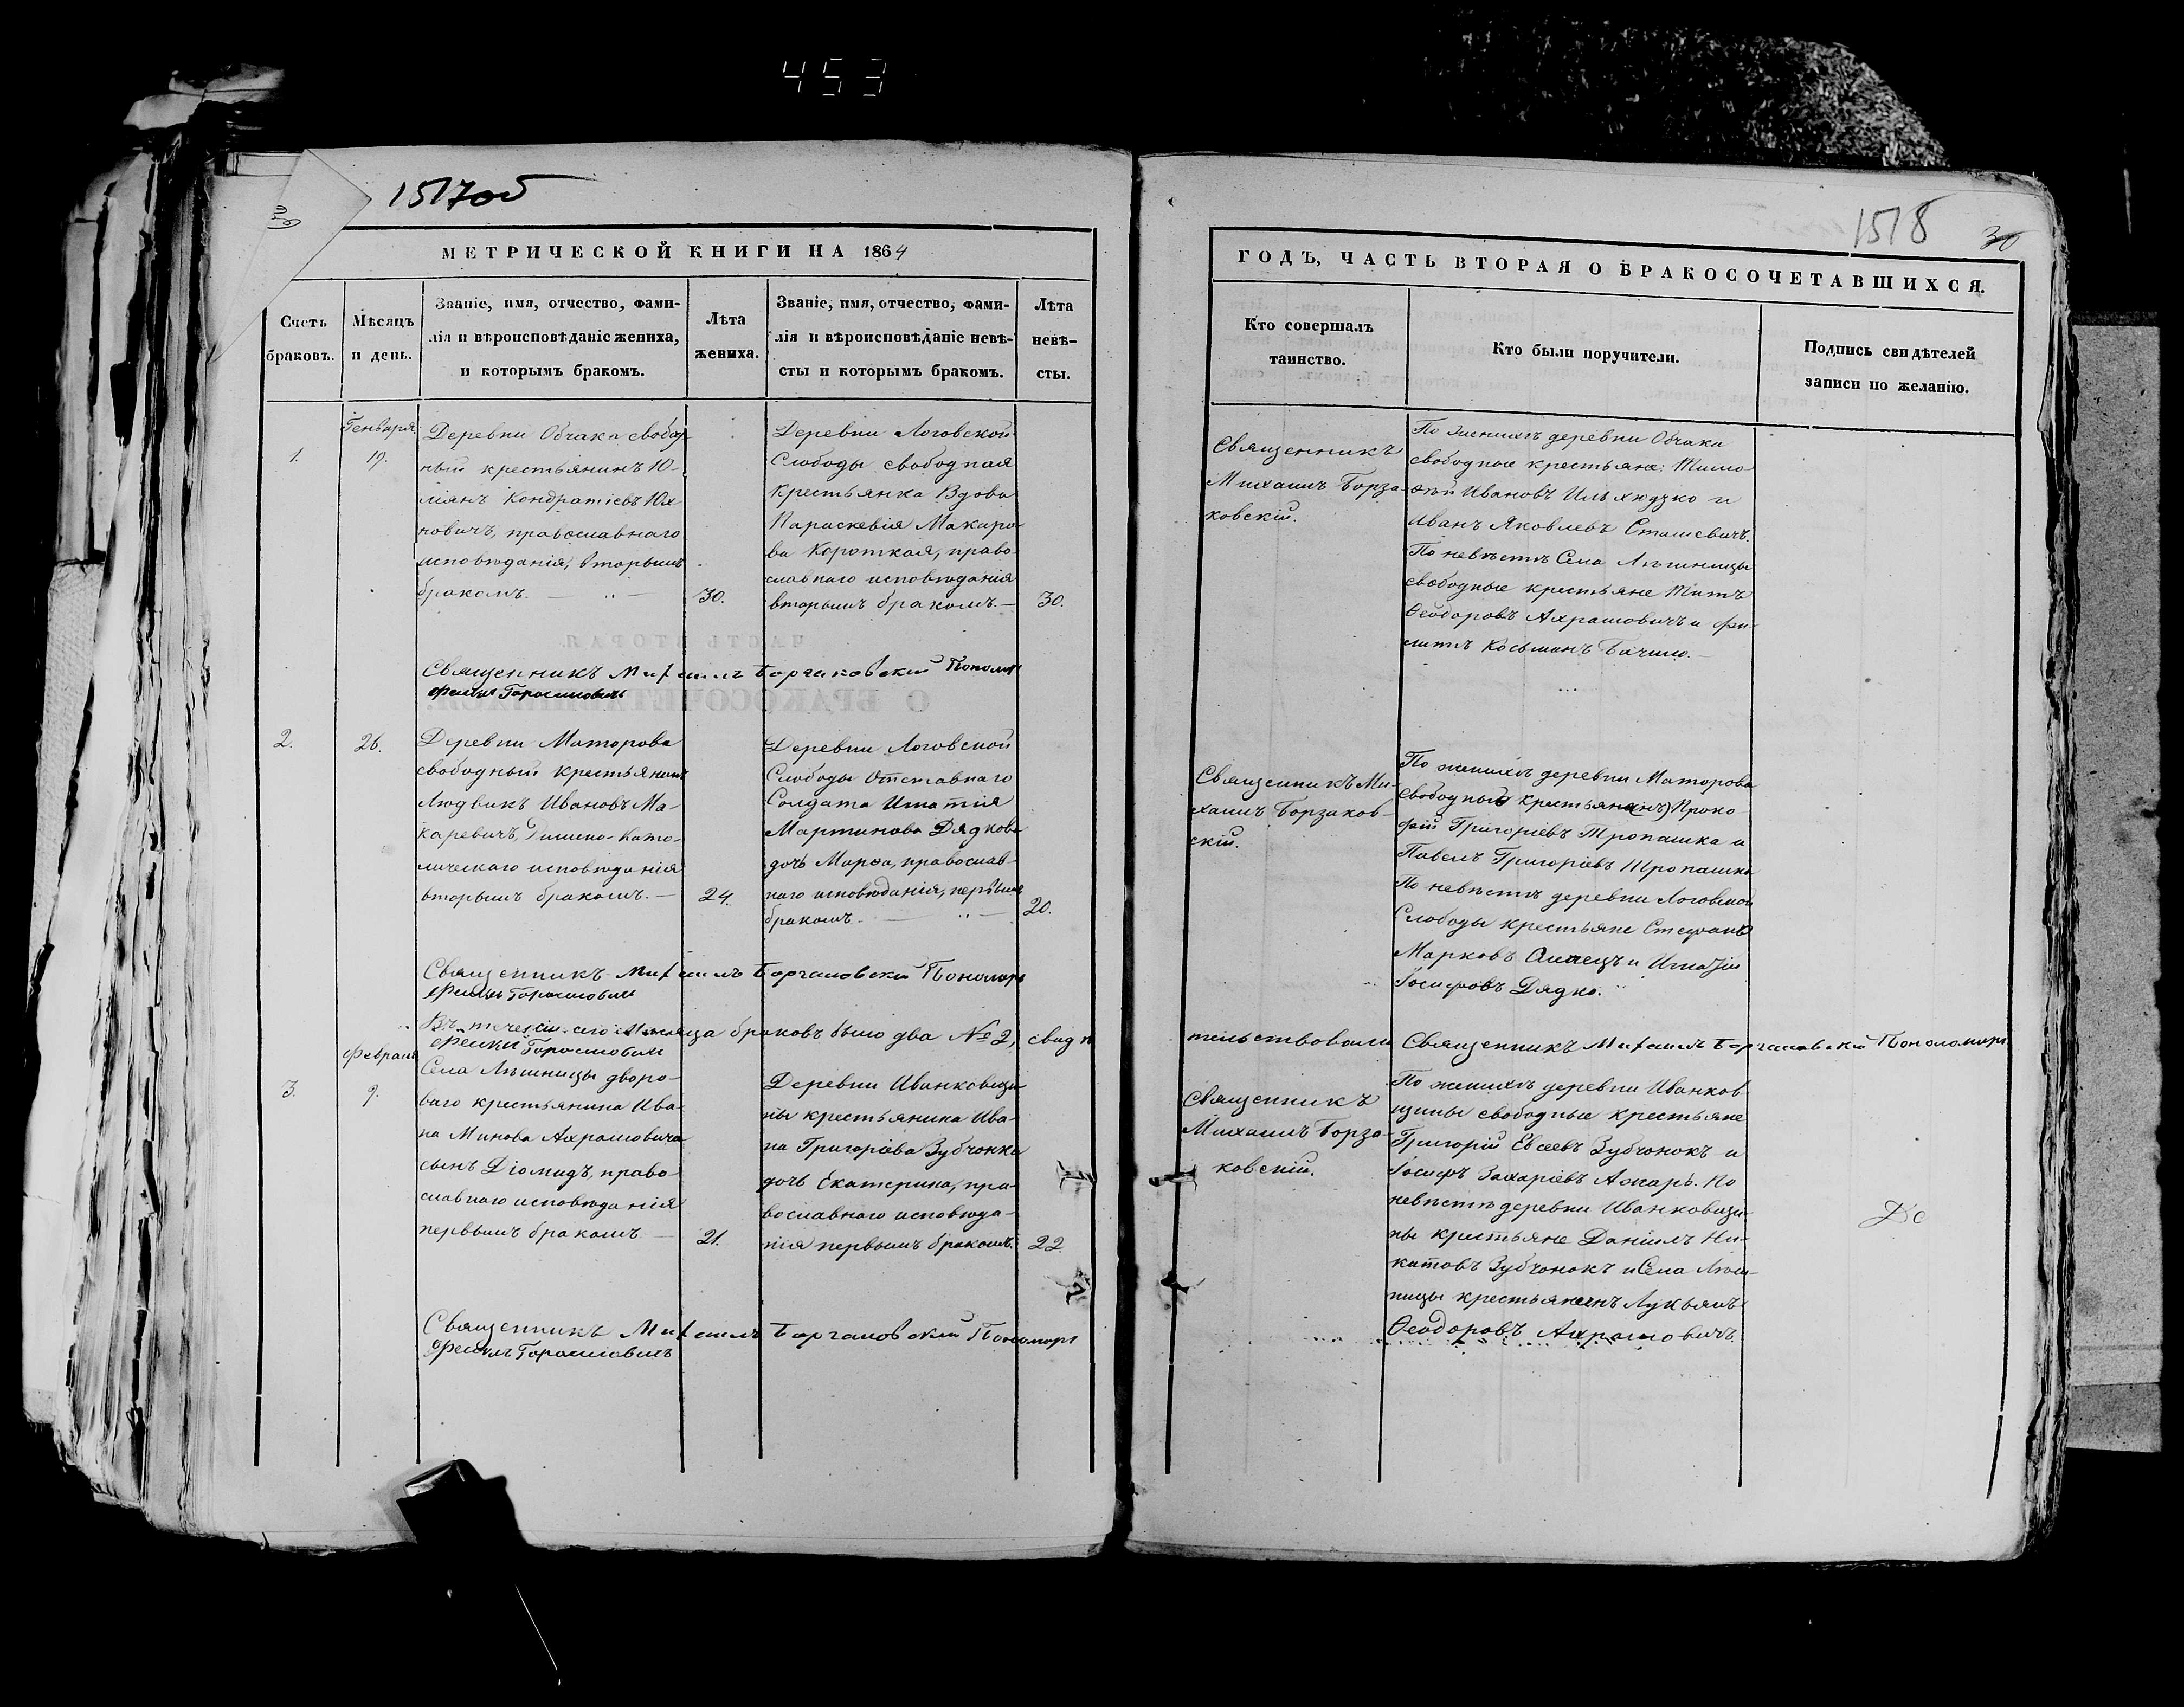 453
1517об
МЕТРИЧЕСКОЙ КНИГИ НА 1864
Счетъ
браковъ.
Мѣсяцъ
и день.
Званіе, имя, отчество, фами-
лія и вѣроисповѣданіе жениха,
и которымъ бракомъ.
Лѣта
жениха.
Званіе, имя, отчество, фами-
лія и вѣроисповѣданіе невѣ-
сты и которымъ бракомъ.
Лѣта
невѣ-
сты.
Генваря
1.
19.
Деревни Обчака свобод-
ный крестьянинъ Ю-
ліянъ Кондратіевъ Юх-
новичъ, православнаго
исповѣданія, вторымъ
бракомъ. —
30.
Деревни Логовской
Слободы свободная
Крестьянка Вдова
Параскевія Макаро-
ва Короткая, право-
славнаго исповѣданія
вторымъ бракомъ. —
30.
Священникъ Михаилъ Борзаковскій Пономарь
2.
26.
Деревни Маторова
свободный крестьянинъ
Людвикъ Ивановъ Ма-
каревичъ, Римско-Като-
лическаго исповѣданія
вторымъ бракомъ. —
24.
Деревни Логовской
Слободы Отставнаго
Солдата Игнатія
Мартинова Дядкова
дочь Марѳа, православ-
наго исповѣданія, первымъ
бракомъ. —
20.
Священникъ Михаилъ Борзаковскій Пономарь
Въ теченіи сего Месяца браковъ было два № 2, свидѣ
Февраля
3.
9.
Села Лѣшницы дворо-
ваго крестьянина Ива-
на Минова Ахрамовича
сынъ Діомидъ, право-
славнаго исповѣданія
первымъ бракомъ. —
21.
Деревни Иванковщи-
ны крестьянина Ива-
на Григоріева Зубчонка
дочь Екатерина, пра-
вославнаго исповѣда-
нія первымъ бракомъ.
22.
Священникъ Михаилъ Борзаковскій Пономарь
1518
30
ГОДЪ, ЧАСТЬ ВТОРАЯ О БРАКОСОЧЕТАВШИХСЯ.
Кто совершалъ
таинство.
Кто были поручители.
Подпись свидѣтелей
записи по желанію.
Священникъ
Михаилъ Борза-
ковскій.
По женихѣ деревни Обчака
свободные крестьяне: Тимо-
ѳей Ивановъ Ильюхудзко и
Иванъ Яковлевъ Сташевичъ.
По невѣстѣ Села Лѣшницы
свободные крестьяне Титъ
Ѳеодоровъ Ахрамовичъ и
Священникъ Ми-
хаилъ Борзаков-
скій.
По женихѣ деревни Маторова
Свободный крестьянинъ Проко-
фій Григоріевъ Тропашка и
Павелъ Григоріевъ Тропашка
По невѣстѣ деревни Логовской
Слободы крестьяне Стефанъ
Марковъ и Игнатій
Іосифовъ Дядко.
тельствовали Священникъ Михаилъ Борзаковскій Пономарь
Священникъ
Михаилъ Борза-
ковскій.
По женихѣ деревни Иванков-
щины свободные крестьяне
Григорій Евсеевъ Зубчонокъ и
Іосифъ Захаріевъ. По
невѣстѣ деревни Иванковщи-
ны крестьяне Даніилъ Ни-
китовъ Зубчонокъ и Села Лѣш-
ницы крестьянинъ Лукьянъ
Ѳеодоровъ Ахрамовичъ.